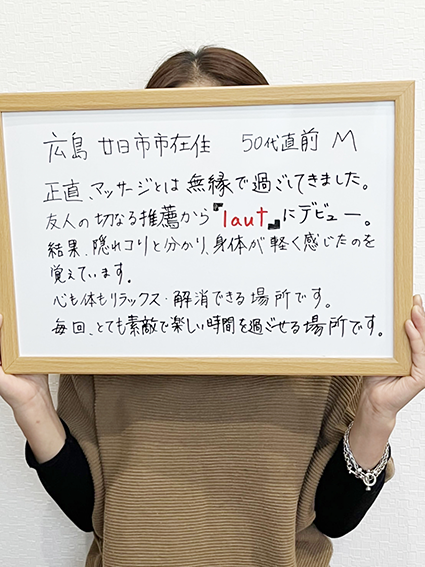 広島 廿日市市在住 50代直前 M
正直、マッサージとは無縁で過ごしてきました。
友人の切なる推薦から『laut』にデビュー。
結果、隠れコリと分かり、身体が軽く感じたのを
覚えています。
心も体もリラックス・解消できる場所です。
毎回、とても素敵で楽しい時間を過ごせる場所です。